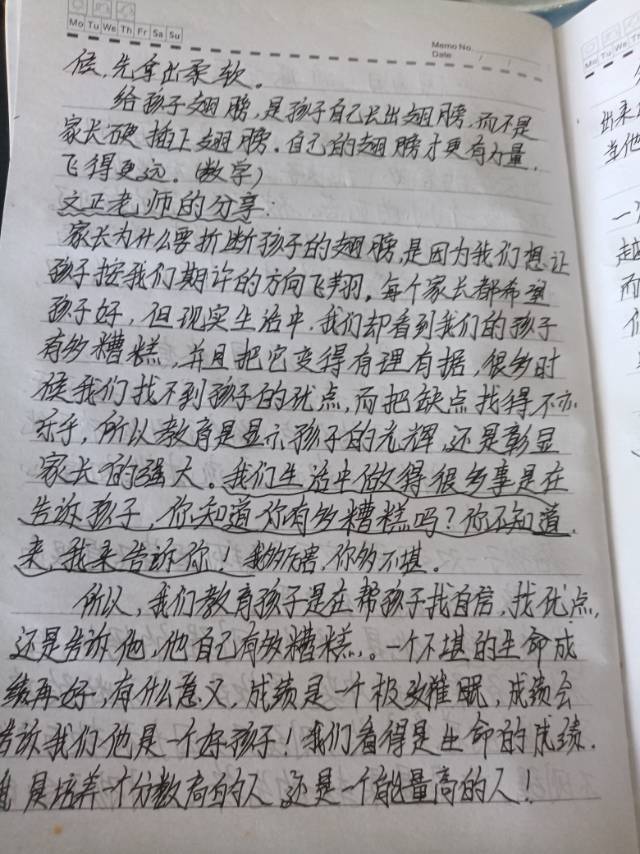 Mo Tu We Th Fr Sa Su
Memo No.
Date / /
候,先拿出柔软。
给孩子翅膀,是孩子自己长出翅膀,而不是
家长硬插上翅膀。自己的翅膀才更有力量,
飞得更远。(数字)
文正老师的分享:
家长为什么要折断孩子的翅膀,是因为我们想让
孩子按我们期许的方向飞翔。每个家长都希望
孩子好,但现实生活中,我们却看到我们的孩子
有多糟糕,并且把它变得有理有据,很多时
候我们找不到孩子的优点,而把缺点找得不亦
乐乎,所以教育是显示孩子的光辉,还是彰显
家长的强大。我们生活中做得很多事是在
告诉孩子,你知道你有多糟糕吗?你不知道,
来,我来告诉你!我多厉害,你多不堪。
所以,我们教育孩子是在帮孩子找自信,找优点,
还是告诉他,他自己有多糟糕。一个不堪的生命成
绩再好,有什么意义,成绩是一个极致催眠,成绩会
告诉我们他是一个好孩子!我们看得是生命的成绩.
是培养一个分数高的人 还是一个能量高的人!
Mo Tu We Th
出来
当他
一
越
而
们